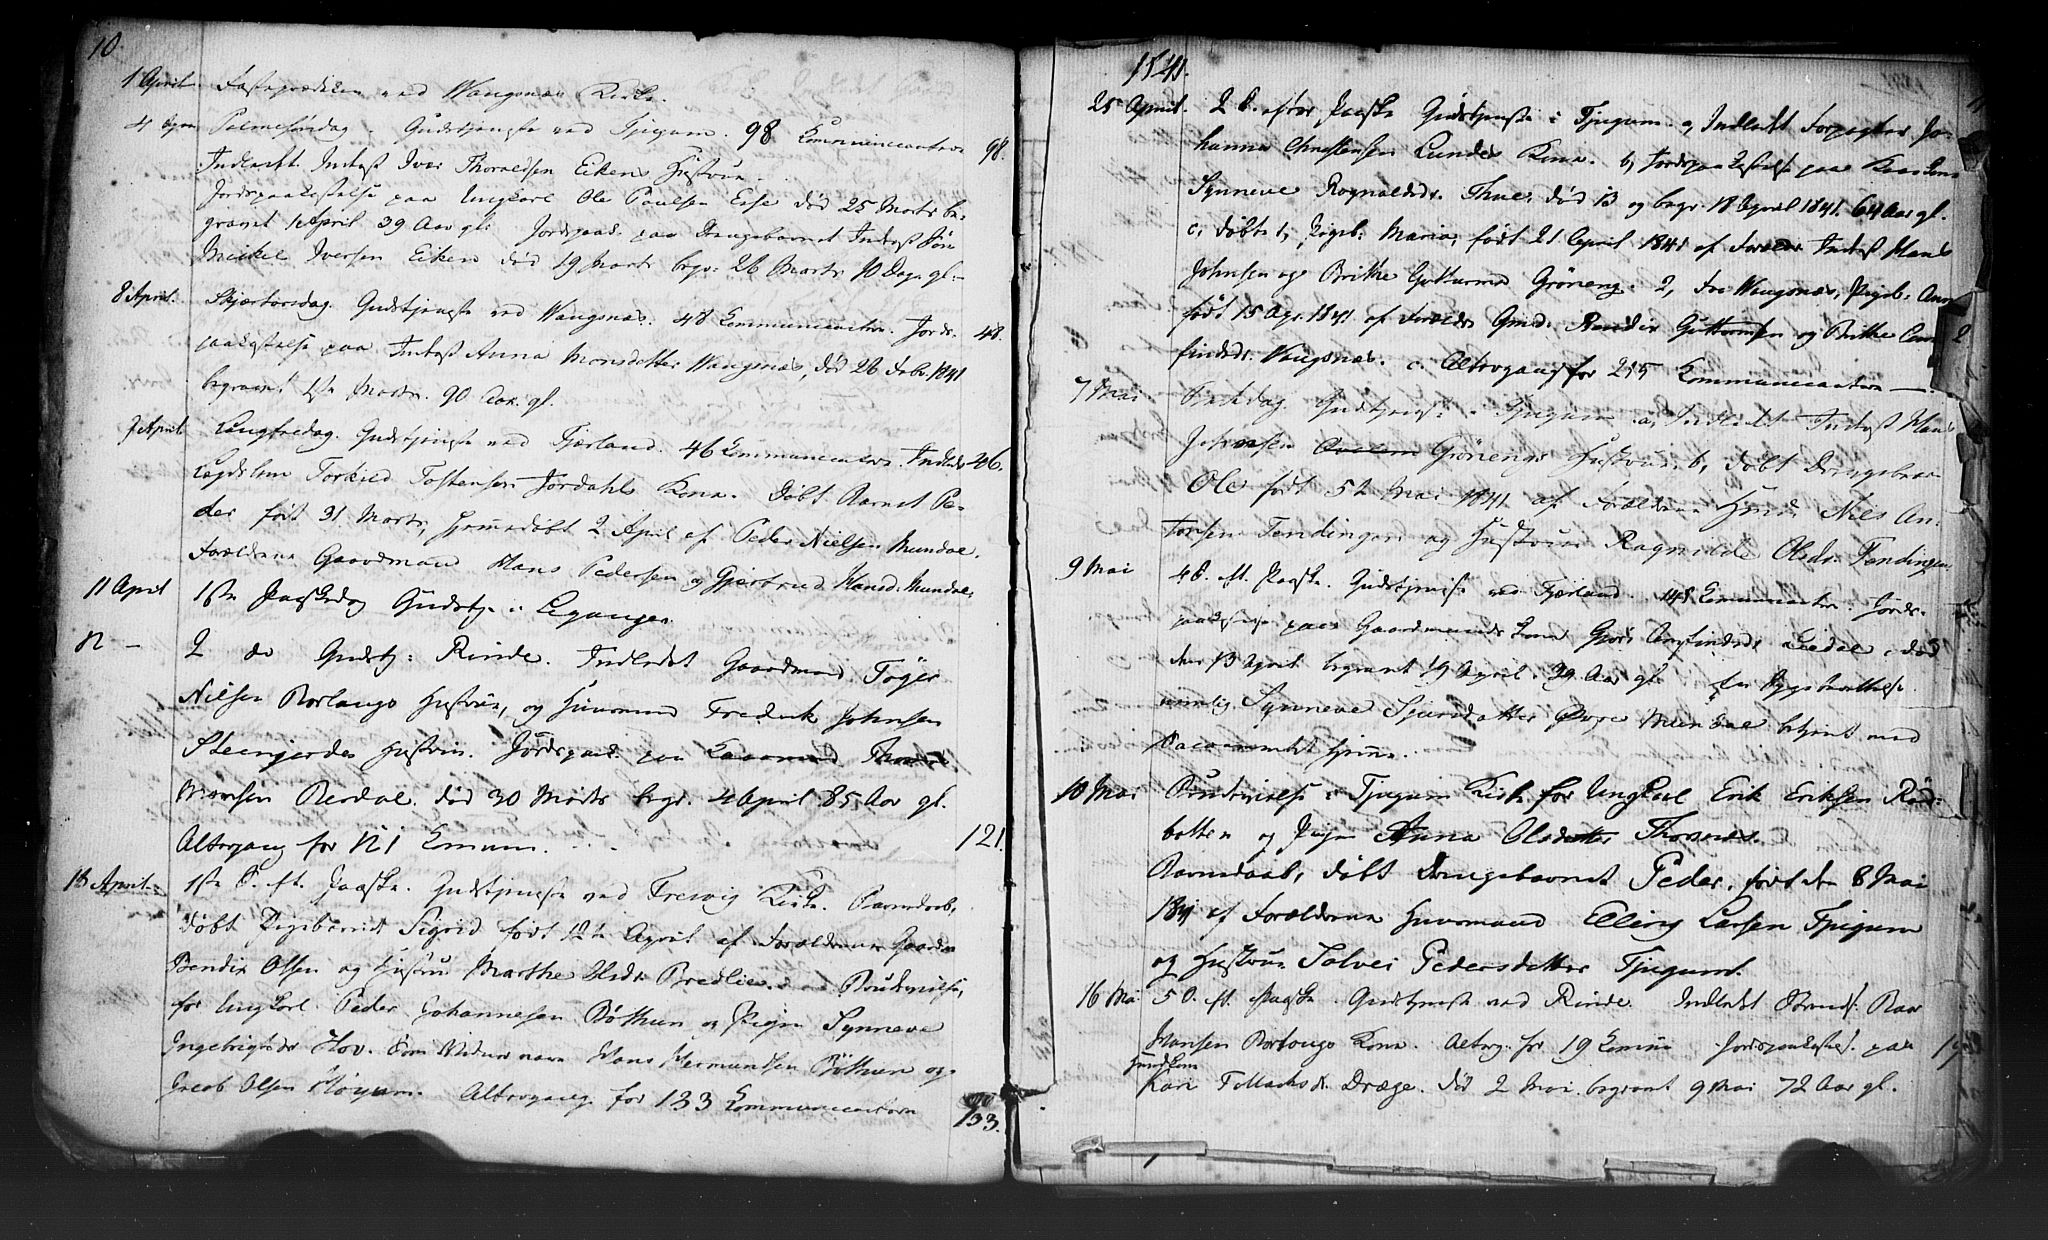 10
1 April Fasteprædiken ved Wangsnæs Kirke.
4 Palmesøndag. Gudstjeneste ved Tjugum. 98 Communicanter 98.
Indledt Indest Iver Thoraldsen Eikens Hustrue.
Jordspaakastelse paa Ungkarl Ole Paulsen Esse død 25 Marts be-
gravet 1 April 39 Aar gl. Jordspaak. paa Drengebarnet Indest Søn
Mickel Iversen Eiken død 19 Marts begr: 26 Marts 10 Dage gl.
8 April. Skjærtorsdag. Gudstjeneste ved Wangsnæs. 48 Communicanter. Jords- 48.
paakastelse paa Indest Anna Monsdatter Wangsnæs, død 26 Febr. 1841
begravet 1ste Marts. 90 Aar gl.
9 April Langfredag. Gudstjeneste ved Fjærland. 46 Communicanter. Indledt 46.
Torkild Tostensen Jordahls Kona. Døbt Barnet Pe-
der født 31 Marts, hjemmedøbt 2 April af Peder Nielsen Mundal.
Forældrene Gaardmand Hans Pedersen og Gjertrud Hansd. Mundal.
11 April 1ste Paaskedag Gudstj. i Leganger.
12 - 2 do Gudstj: Rinde. Indledet Gaardmand Töger
Nilsen Borlaugs Hustrue, og Huusmand Frederik Johnsen
Steengjerdes Hustrue. Jordspaak. paa
Monsen Resdal. død 30 Marts begr. 4 April 85 Aar gl.
Altergang for 121 Comun. 121.
18 April 1ste S. eft. Paaske. Gudstjeneste ved Fresvig Kirke. Barnedaab,
døbt Pigebarnet Sigrid født 12te April af Forældrene
Bendix Olsen og Hustrue Marthe Bredlie. Brudevielse,
for Ungkarl Peder Johannesen Böthun og Pigen Synneve
Ingebrigtsdr Hov. Som Vidner vare Hans Hermundsen Böthun og
Jacob Olsen Höyum. Altergang for 133 Communicanter
133.
1841.
25 April. 2 S. efter Paaske Gudstjeneste i Tjugum. a, Indledt Forpagter Jo-
hannes Christensen Lundes Kona. b, Jordspaakastelse paa
Synneve Rognaldsdr. Thue, død 13 og begr. 18 April 1841. 64 Aar gl.
c, døbt 1, Pigeb. Maria, født 21 April 1841 af Foreldre Indest Hans
Johnsen og Brithe Guttormsd Gröneng. 2, fra Wangsnæs, Pigeb: Ane
født 15 Apr. 1841 af Foreldre Gmd. Guttormsen og Brithe
findsdr. Wangsnæs. c. Altergang for 215 Communicanter
7 Mai Gudstjeneste i Tjugum. a, Indledt Indest Hans
Johnsen Grönengs Hustrue. b, døbt Drengebarn
Ole født 5te Mai 1841 af Forældrene Husmd. Nils An-
torsen Fendingen og Hustrue Ragnilde Olsdr. Fendingen.
9 Mai 4 S. eft. Paaske. Gudstjeneste ved Fjærland. 48 Communicanter. Jords-
paakastelse paa Gaardmands Kona Gjøri Anfindsdr. død
den 13 April begravet 19 April. 39 Aar gl.
nemlig Synneve Sjursdatter Mundal betjent med
Sacramentet hjemme.
10 Mai Brudevielse i Tjugum Kirke for Ungkarl Erik Eriksen Rød-
botten og Pigen Anna Olsdatter Thorsnæs.
Barnedaab, døbt Drengebarnet Peder, født den 8 Mai
1841 af Forældrene Huusmand Elling Larsen Tjugum
og Hustrue Solvei Pedersdatter Tjugum.
16 Mai 5 S. eft. Paaske. Gudstjeneste ved Rinde. Indledt
Hansen Borlaugs Kona. Alterg. for 19 Comun. Jordspaakastelse paa 19
Kari Dræge. død 2 Mai begravet 9 Mai 72 Aar gl.